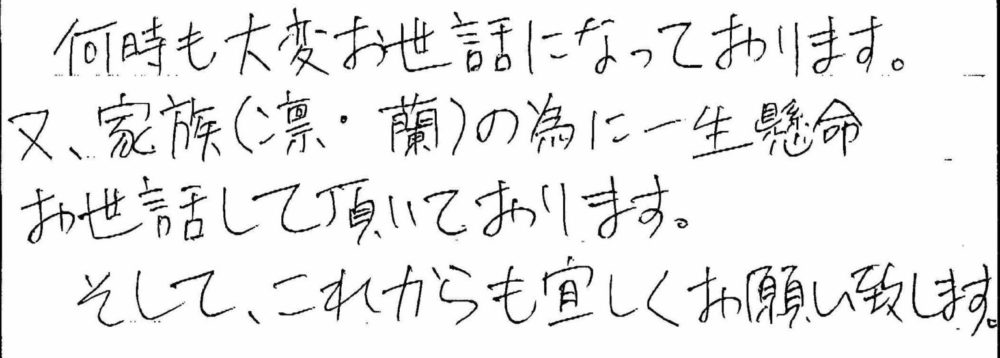 何時も大変お世話になっております。
又、家族(凛・蘭)の為に一生懸命
お世話して頂いております。
そして、これからも宜しくお願い致します。